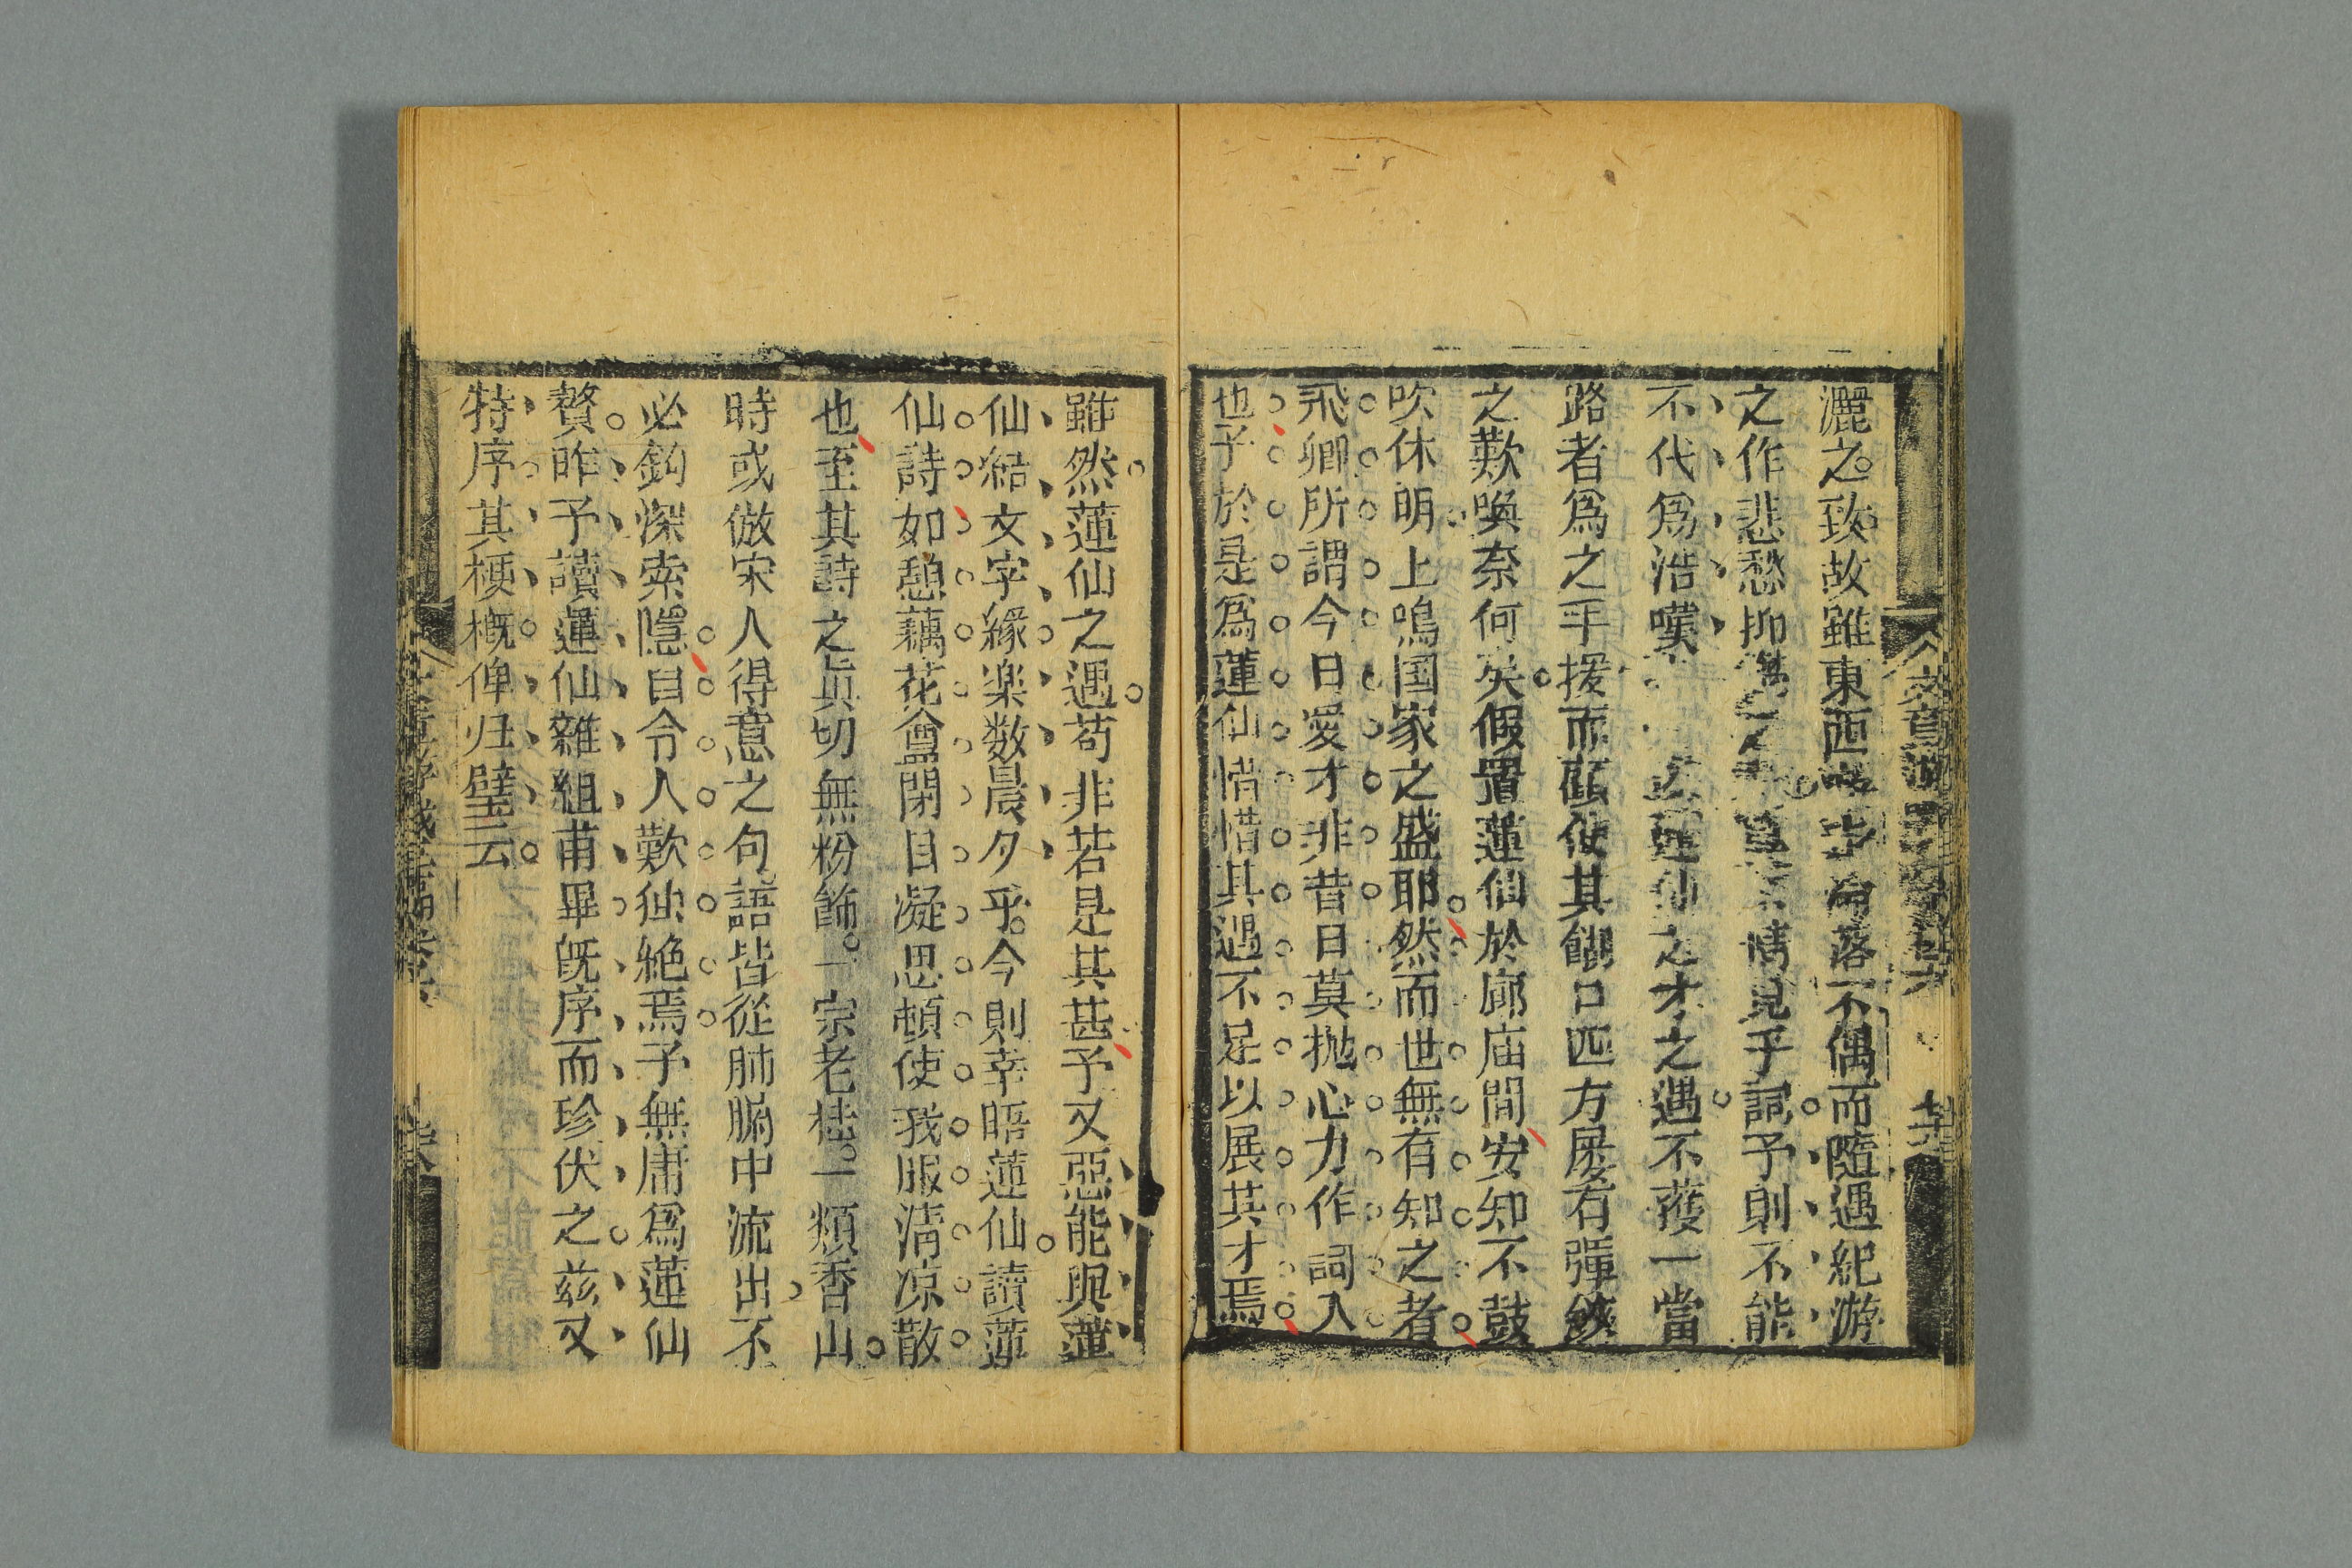 灑之致故雖東西落不偶而隨遇紀游
之作悲愁抑情見乎詞予則不能
不代爲浩嘆蓮仙之才之遇不獲一當
路者爲之手援而顧使其餬口四方屡有彈鋏
之歎喚奈何矣假置蓮仙於廊庙間安知不鼓
吹休明上鳴国家之盛耶然而世無有知之者
飛卿所謂今日愛才非昔日莫抛心力作詞人
也予於是爲蓮仙惜惜其遇不足以展其才焉
雖然蓮仙之遇苟非若是其甚予又惡能與蓮
仙結文字緣楽数晨夕乎今則幸晤蓮仙讀蓮
仙詩如憩藕花盦閑目凝思頓使我服清凉散
也至其詩之眞切無粉飾一宗老杜一類香山
時或倣宋人得意之句語皆從肺腑中流出不
必鈎深索隱自令人歎絶焉予無庸爲蓮仙
贅昨予讀蓮仙雜組甫畢旣序而珍伏之兹又
特序其梗概俾归璧云